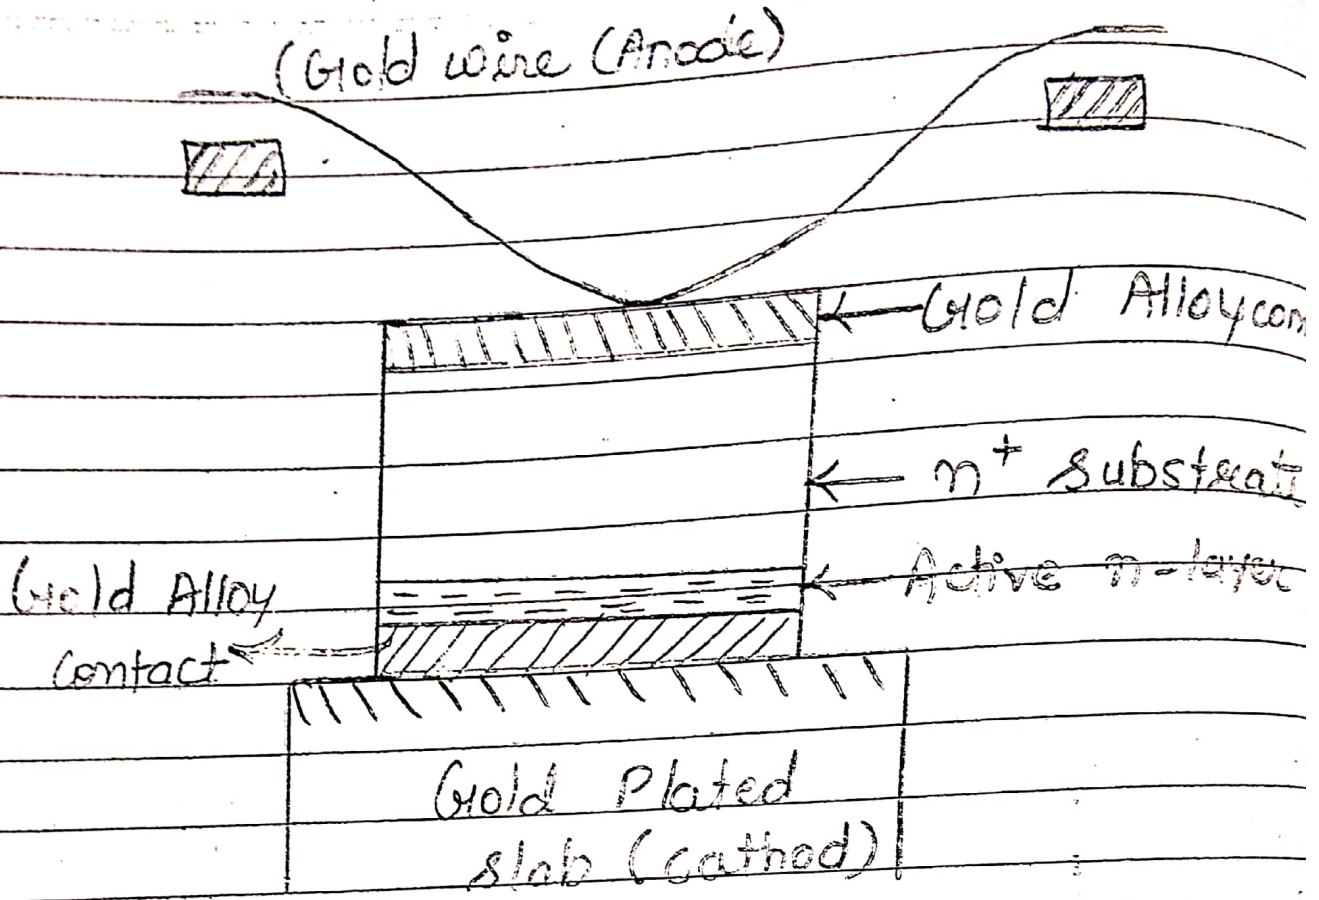 (Gold wire (Anode)
Gold Alloy con
n+ substrate
Active n-layer
Gold Alloy
contact
Gold Plated
slab (cathod)